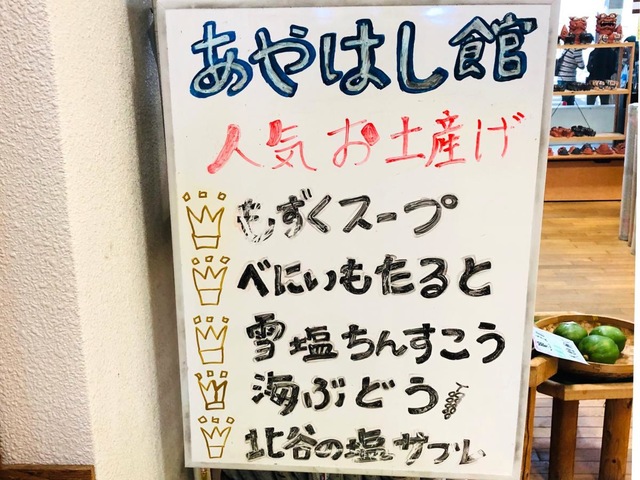 あやはし館
人気お土産げ
もずくスープ
べにいもたると
雪塩ちんすこう
海ぶどう
北谷の塩サブレ